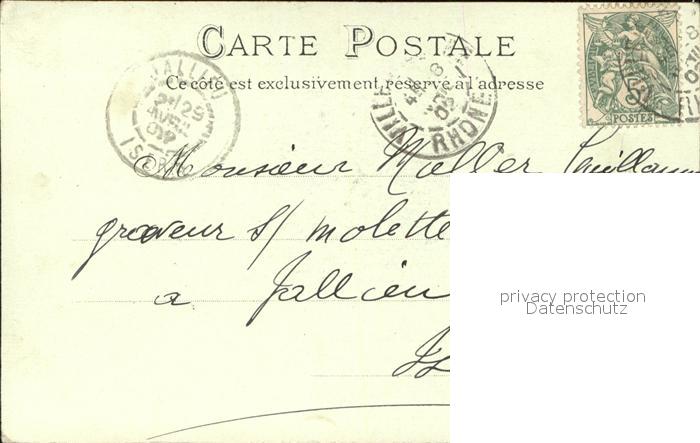 CARTE POSTALE
Ce côté est exclusivement réservé à l'adresse
JALLIEU
29
AVRIL
ISERE
RHONE
POSTES
Monsieur Maller
graveur s/ molette
a Jallieu
Is
privacy protection
Datenschutz